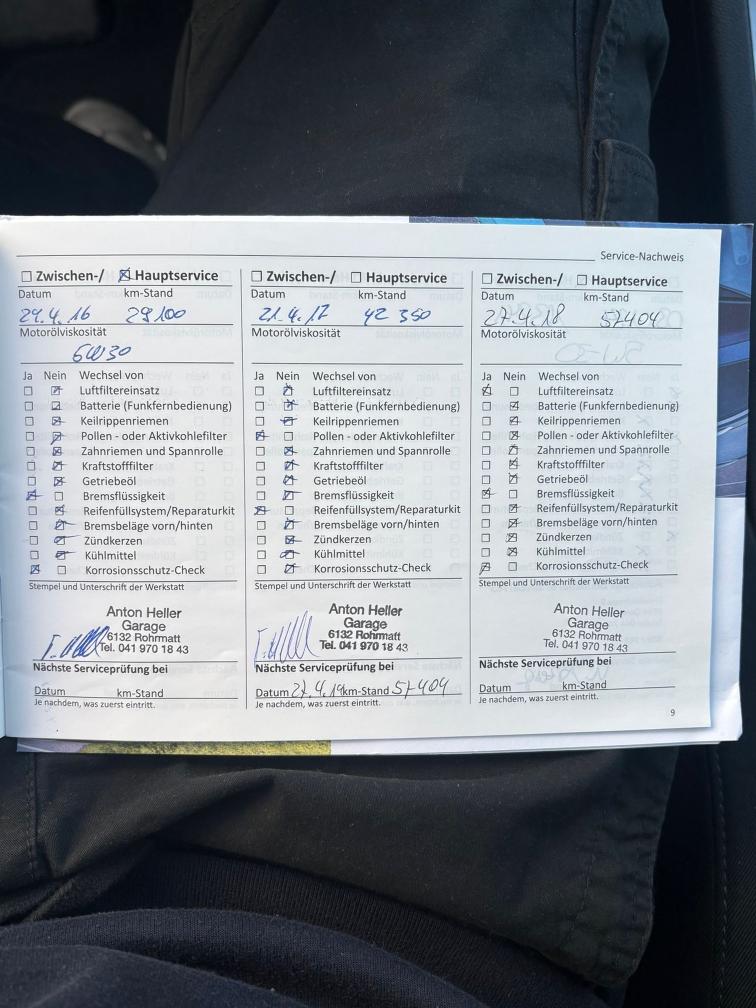 Service-Nachweis
☐ Zwischen-/ ☒ Hauptservice
Datum km-Stand
29.4.16 29100
Motorölviskosität
5W30
Ja Nein Wechsel von
☐ ☒ Luftfiltereinsatz
☐ ☒ Batterie (Funkfernbedienung)
☐ ☒ Keilrippenriemen
☐ ☒ Pollen - oder Aktivkohlefilter
☐ ☒ Zahnriemen und Spannrolle
☐ ☒ Kraftstofffilter
☐ ☒ Getriebeöl
☒ ☐ Bremsflüssigkeit
☐ ☒ Reifenfüllsystem/Reparaturkit
☐ ☒ Bremsbeläge vorn/hinten
☐ ☒ Zündkerzen
☐ ☒ Kühlmittel
☒ ☐ Korrosionsschutz-Check
Stempel und Unterschrift der Werkstatt
Anton Heller
Garage
6132 Rohrmatt
Tel. 041 970 18 43
Nächste Serviceprüfung bei
Datum km-Stand
Je nachdem, was zuerst eintritt.
☐ Zwischen-/ ☐ Hauptservice
Datum km-Stand
21.4.17 42 350
Motorölviskosität
Ja Nein Wechsel von
☐ ☒ Luftfiltereinsatz
☐ ☒ Batterie (Funkfernbedienung)
☐ ☒ Keilrippenriemen
☒ ☐ Pollen - oder Aktivkohlefilter
☐ ☒ Zahnriemen und Spannrolle
☐ ☒ Kraftstofffilter
☐ ☒ Getriebeöl
☐ ☒ Bremsflüssigkeit
☒ ☐ Reifenfüllsystem/Reparaturkit
☐ ☒ Bremsbeläge vorn/hinten
☐ ☒ Zündkerzen
☐ ☒ Kühlmittel
☐ ☒ Korrosionsschutz-Check
Stempel und Unterschrift der Werkstatt
Anton Heller
Garage
6132 Rohrmatt
Tel. 041 970 18 43
Nächste Serviceprüfung bei
Datum 27.4.19 km-Stand 57404
Je nachdem, was zuerst eintritt.
☐ Zwischen-/ ☐ Hauptservice
Datum km-Stand
27.4.18 57404
Motorölviskosität
Ja Nein Wechsel von
☒ ☐ Luftfiltereinsatz
☐ ☒ Batterie (Funkfernbedienung)
☐ ☒ Keilrippenriemen
☐ ☒ Pollen - oder Aktivkohlefilter
☐ ☒ Zahnriemen und Spannrolle
☐ ☒ Kraftstofffilter
☐ ☒ Getriebeöl
☒ ☐ Bremsflüssigkeit
☐ ☒ Reifenfüllsystem/Reparaturkit
☐ ☒ Bremsbeläge vorn/hinten
☐ ☒ Zündkerzen
☐ ☒ Kühlmittel
☒ ☐ Korrosionsschutz-Check
Stempel und Unterschrift der Werkstatt
Anton Heller
Garage
6132 Rohrmatt
Tel. 041 970 18 43
Nächste Serviceprüfung bei
Datum km-Stand
Je nachdem, was zuerst eintritt.
9